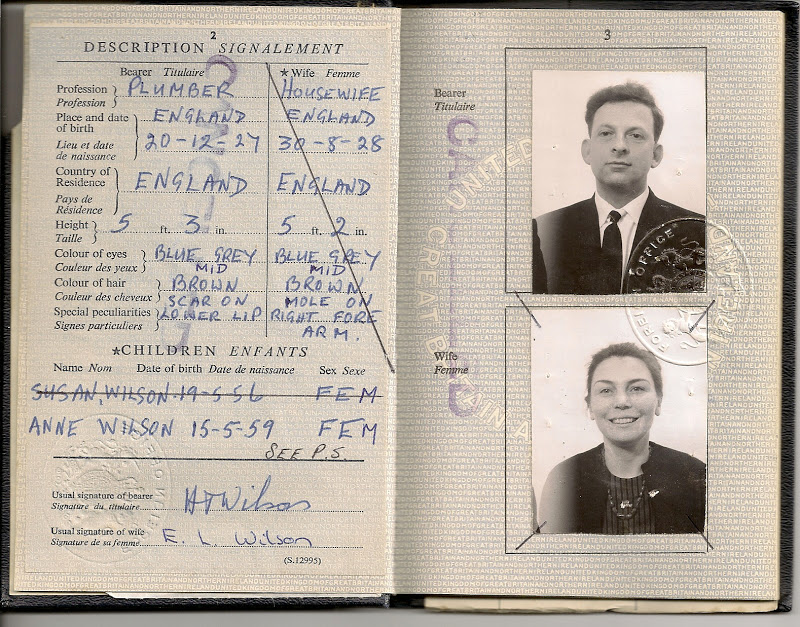 2
DESCRIPTION SIGNALEMENT
Bearer Titulaire ★Wife Femme
Profession PLUMBER HOUSEWIFE
Profession
Place and date ENGLAND ENGLAND
of birth
Lieu et date 20-12-27 30-8-28
de naissance
Country of
Residence ENGLAND ENGLAND
Pays de
Résidence
Height 5 ft. 3 in. 5 ft. 2 in.
Taille
Colour of eyes BLUE GREY BLUE GREY
Couleur des yeux MID MID
Colour of hair BROWN BROWN
Couleur des cheveux SCAR ON MOLE ON
Special peculiarities LOWER LIP RIGHT FORE
Signes particuliers ARM.
★CHILDREN ENFANTS
Name Nom Date of birth Date de naissance Sex Sexe
SUSAN WILSON 19-5-56 FEM
ANNE WILSON 15-5-59 FEM
SEE P.5.
Usual signature of bearer
Signature du titulaire H T Wilson
Usual signature of wife
Signature de sa femme E. L. Wilson
(S.12995)
3
Bearer
Titulaire
Wife
Femme
UNITED
GREAT BRITAIN A
N IRELAND
FOREIGN OFFICE